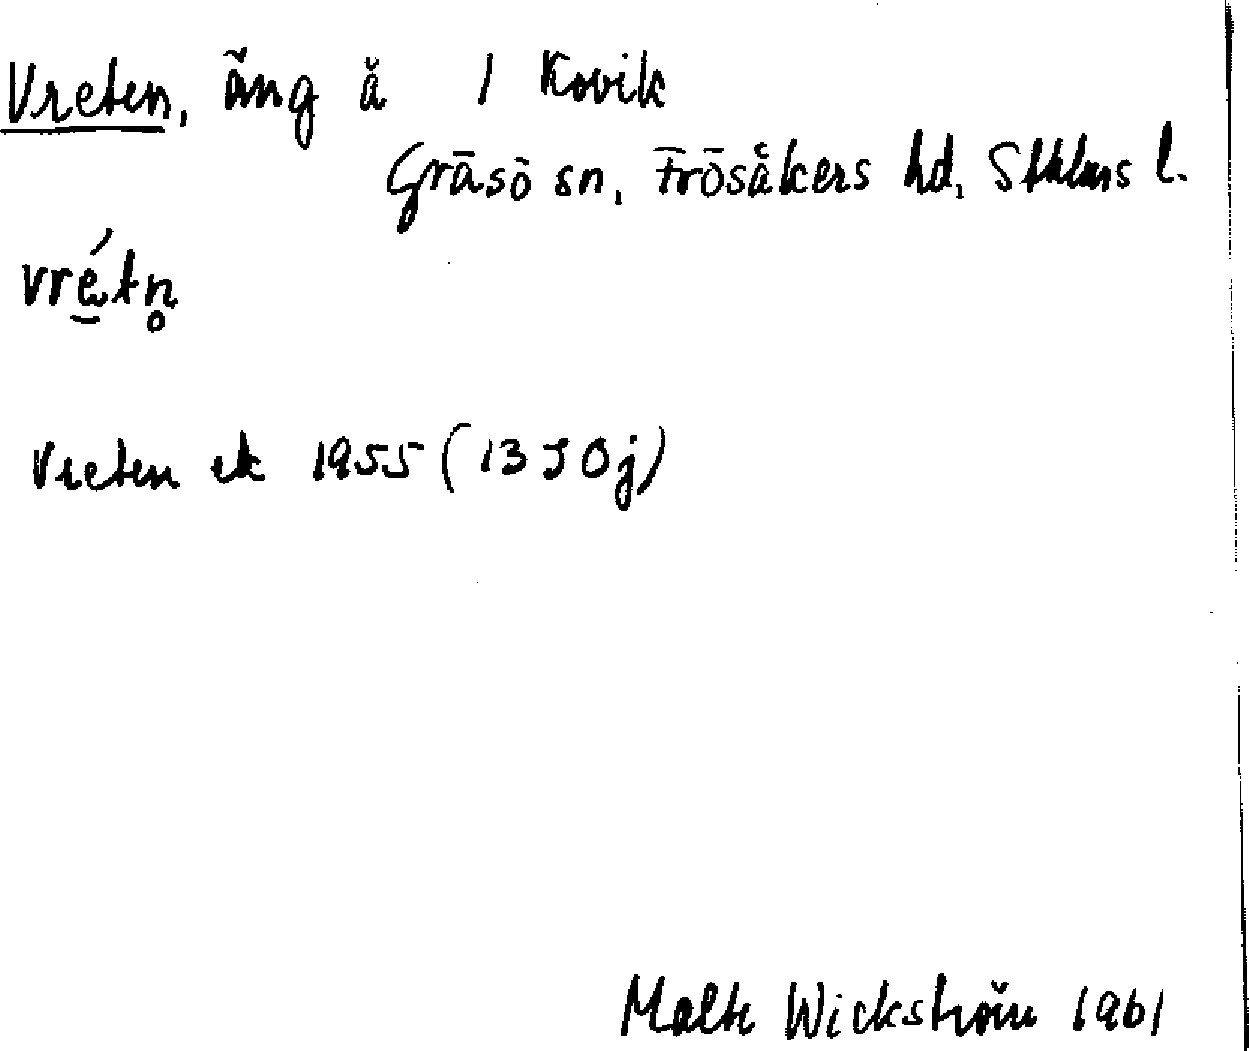 Vreten, äng å 1 Kovik
Gräsö sn, Frösåkers hd, Sthlms l.
vré̱tn̥
Vreten ek 1955 (13 J 0 j)
Malte Wickström 1961